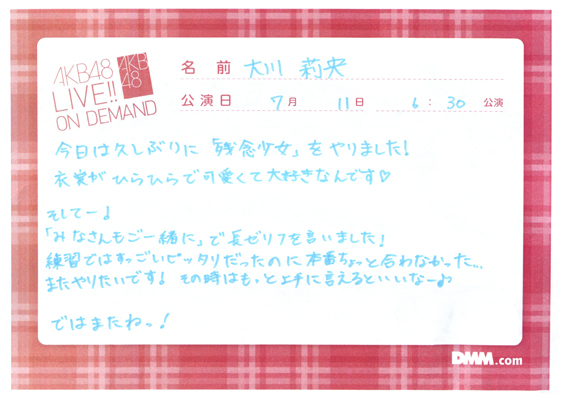 AKB48
LIVE!!
ON DEMAND
AKB
48
名 前 大川 莉央
公演日 7月 11日 6:30 公演
今日は久しぶりに「残念少女」をやりました!
衣装がひらひらで可愛くて大好きなんです♡
そしてー♩
「みなさんもご一緒に」で長ゼリフを言いました!
練習ではすっごいピッタリだったのに本番ちょっと合わなかった...
またやりたいです! その時はもっと上手に言えるといいなー♪
ではまたねっ!
DMM.com